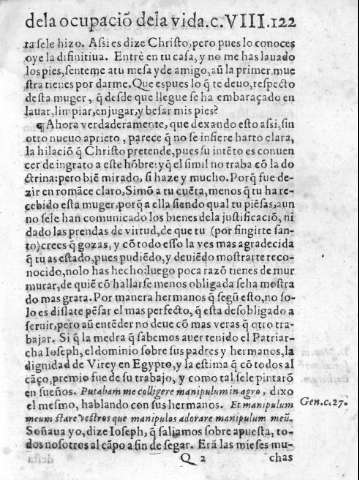 dela ocupaciõ dela vida.c.VIII.122
ra sele hizo. Assi es dize Christo, pero pues lo conoces
oye la difinitiua. Entrè en tu casa, y no me has lauado
los pies, senteme a tu mesa y de amigo, aũ la primer mue
stra tienes por darme. Que es pues lo q̃ te deuo, respecto
desta muger, q̃ desde que llegue se ha embaraçado en
lauar, limpiar, enjugar, y besar mis pies?
¶ Ahora verdaderamente, que dexando esto assi, sin
otro nueuo aprieto, parece q̃ no se infiere harto clara,
la hilaciõ q̃ Christo pretende, pues su intẽto es conuen
cer de ingrato a este hõbre: y q̃ el simil no traba cõ la do
ctrina: pero biẽ mirado, si haze y mucho. Porq̃ fue de-
zir en romãce claro, Simõ a tu cuẽta, menos q̃ tu ha re
cebido esta muger, porq̃ a ella siendo qual tu piẽsas, aun
no sele han comunicado los bienes dela justificaciõ, ni
dado las prendas de virtud, de que tu (por fingirte san-
to) crees q̃ gozas, y cõ todo esso la ves mas agradecida
q̃ tu as estado, pues pudiẽdo, y deuiẽdo mostrarte reco-
nocido, nolo has hecho: luego poca razõ tienes de mur
murar, de quiẽ cõ hallarse menos obligada se ha mostra
do mas grata. Por manera hermanos q̃ segũ esto, no so-
lo es dislate pẽsar el mas perfecto, q̃ esta desobligado a
seruir, pero aũ entẽder no deue cõ mas veras q̃ otro tra-
bajar. Si q̃ la medra q̃ sabemos auer tenido el Patriar-
cha Ioseph, el dominio sobre sus padres y hermanos, la
dignidad de Virey en Egypto, y la estima q̃ cõ todos al
cãço, premio fue de su trabajo, y como tal sele pintarõ
en sueños. Putabam me colligere manipulum in agro, dixo
el mesmo, hablando con sus hermanos. Et manipulum
meum stare vestros que manipulos adorare manipulum meũ.
Gen.c.27.
Soñaua yo, dize Ioseph, q̃ saliamos sobre apuesta, to-
dos nosotros al cãpo a fin de segar. Erã las mieses mu-
Q 2 chas